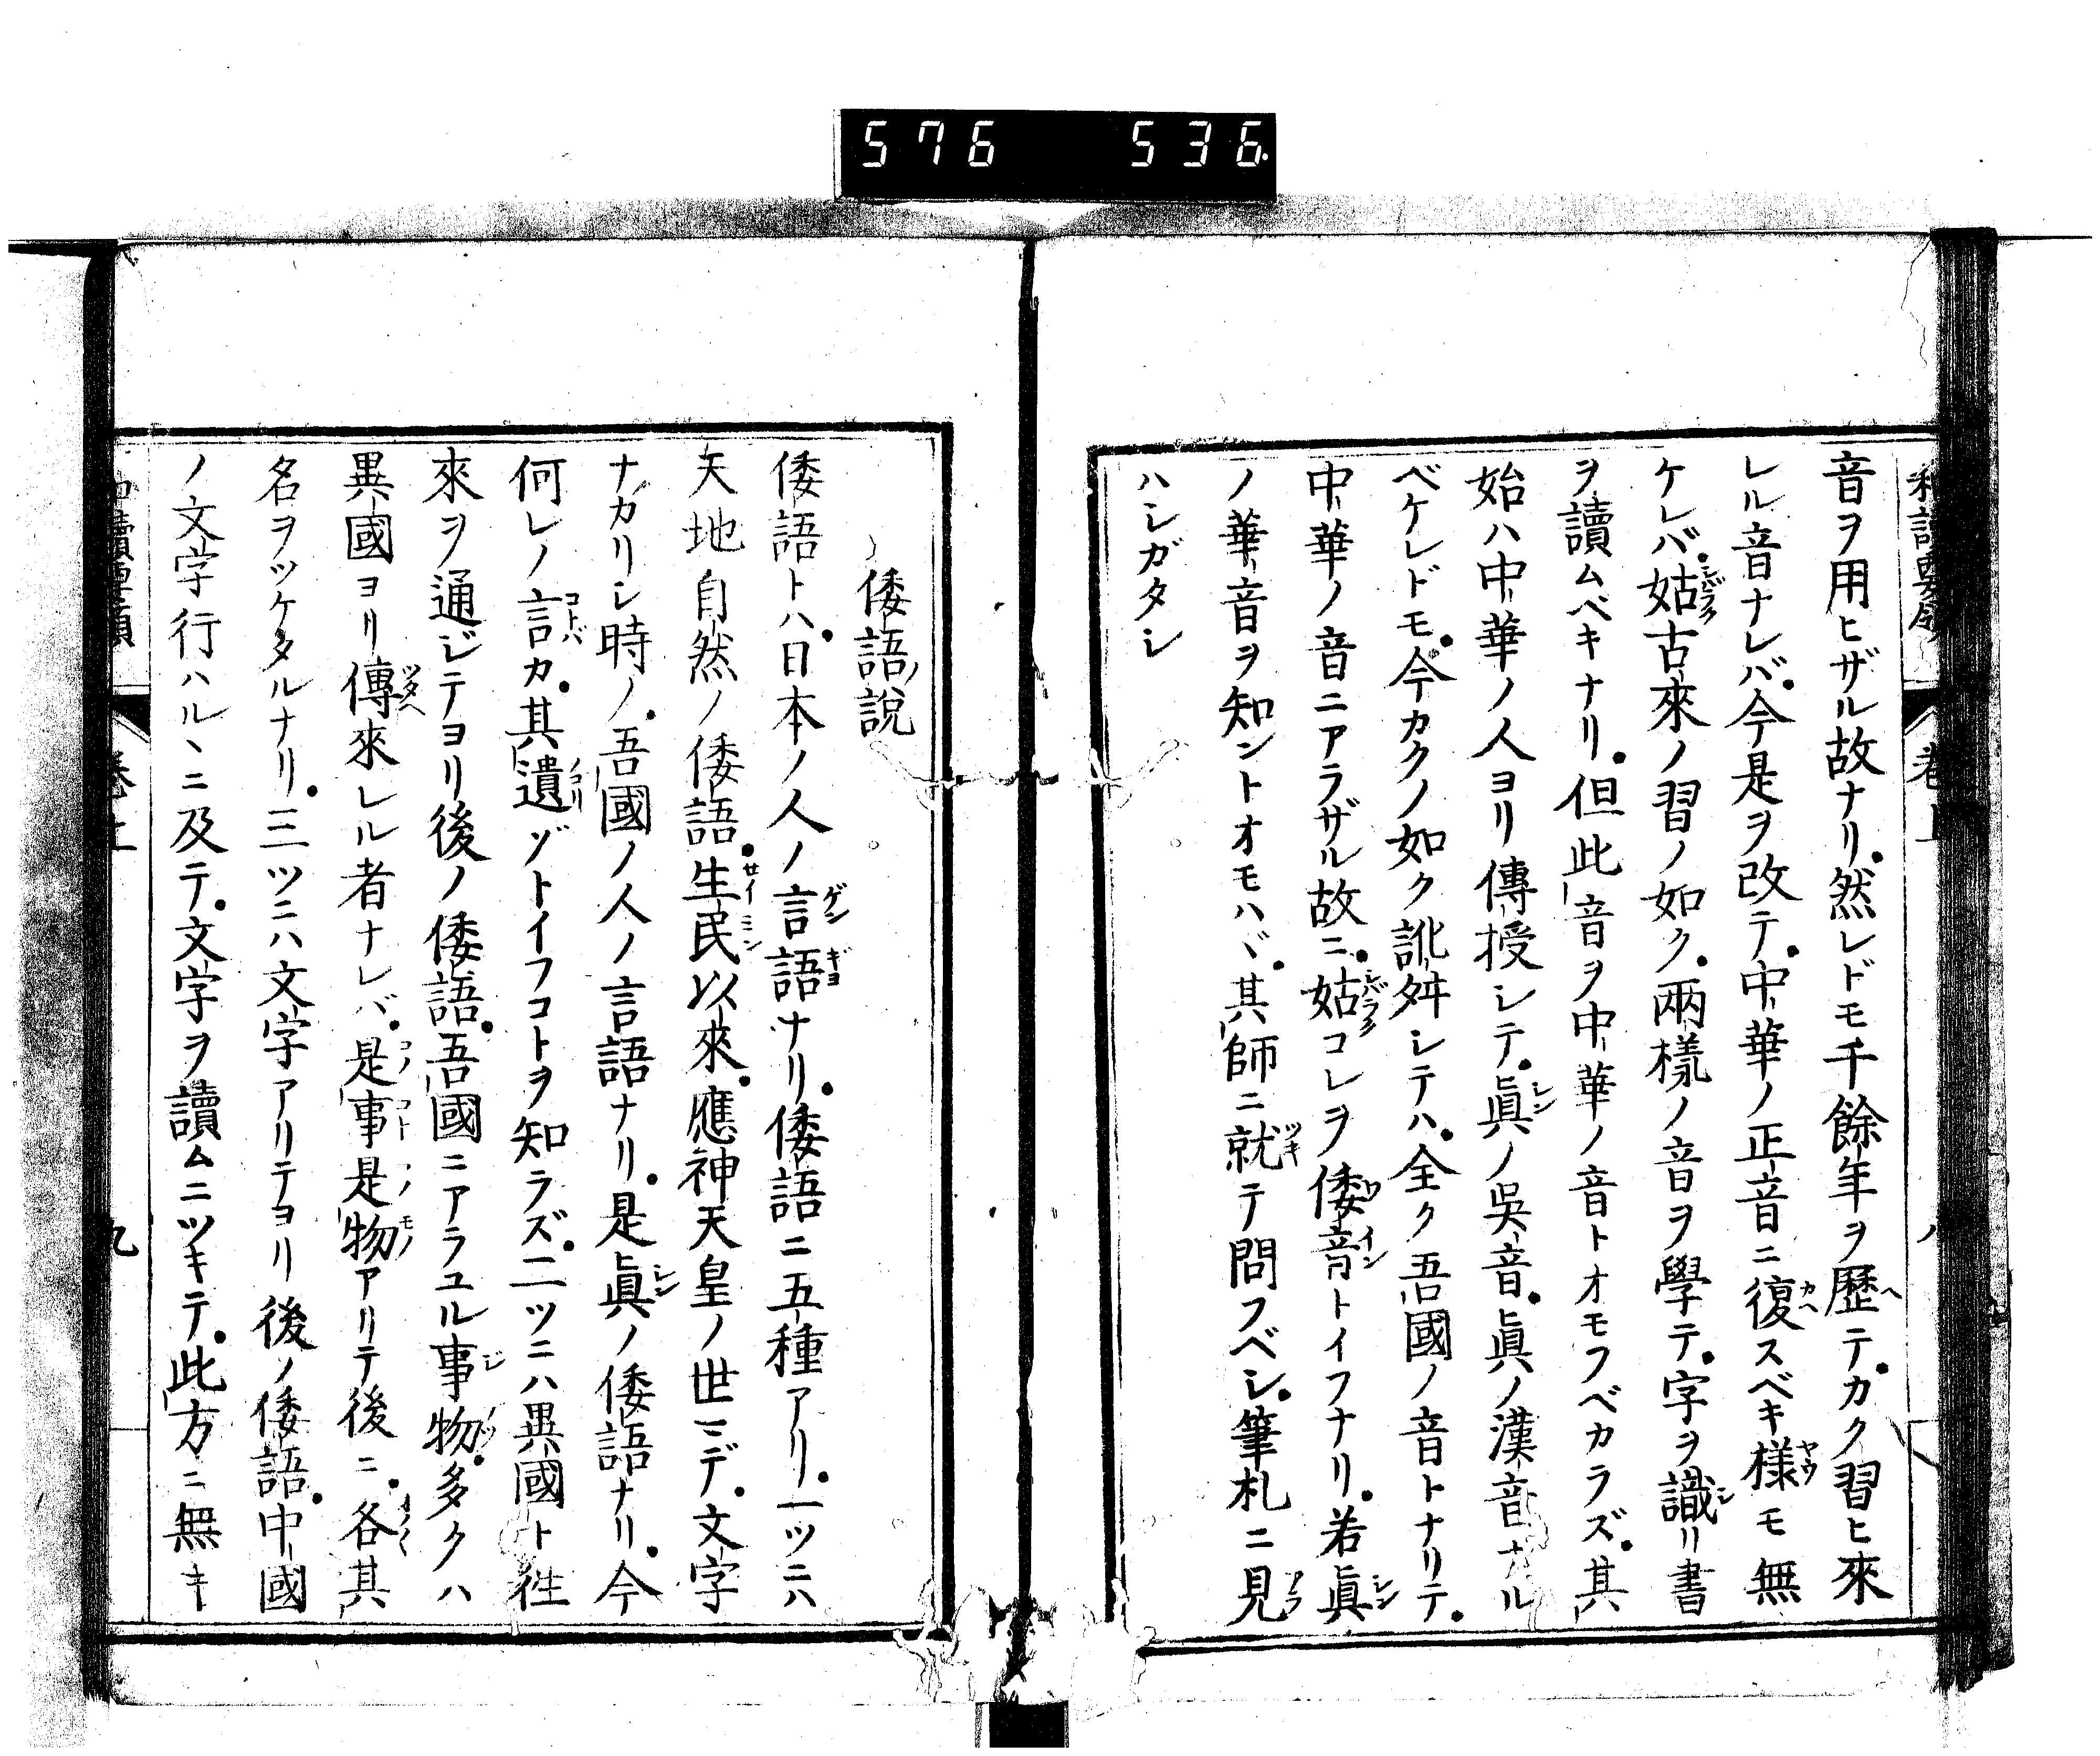 576 536
音ヲ用ヒザル故ナリ。然レドモ千餘年ヲ歴テ。カク習ヒ來
レル音ナレバ。今是ヲ改テ。中華ノ正音ニ復スベキ様モ無
ケレバ。姑古來ノ習ノ如ク。兩樣ノ音ヲ學テ。字ヲ識リ書
ヲ讀ムベキナリ。但此音ヲ中華ノ音トオモフベカラズ。其
始ハ中華ノ人ヨリ傳授シテ。眞ノ吳音。眞ノ漢音ナル
ベケレドモ。今カクノ如ク訛舛シテハ。全ク吾國ノ音トナリテ。
中華ノ音ニアラザル故ニ。姑コレヲ倭音トイフナリ。若眞
ノ華音ヲ知ントオモハヾ。其師ニ就テ問フベシ。筆札ニ見
ハシガタシ
倭語說
倭語トハ。日本ノ人ノ言語ナリ。倭語ニ五種アリ。一ツニハ
天地自然ノ倭語。生民以來。應神天皇ノ世マデ。文字
ナカリシ時ノ。吾國ノ人ノ言語ナリ。是眞ノ倭語ナリ。今
何レノ言カ。其遺ゾトイフコトヲ知ラズ。二ツニハ異國ト徃
來ヲ通ジテヨリ後ノ倭語。吾國ニアラユル事物。多クハ
異國ヨリ傳來レル者ナレバ。是事是物アリテ後ニ。各其
名ヲツケタルナリ。三ツニハ文字アリテヨリ後ノ倭語。中國
ノ文字行ハルヽニ及テ。文字ヲ讀ムニツキテ。此方ニ無キ
卷上
九